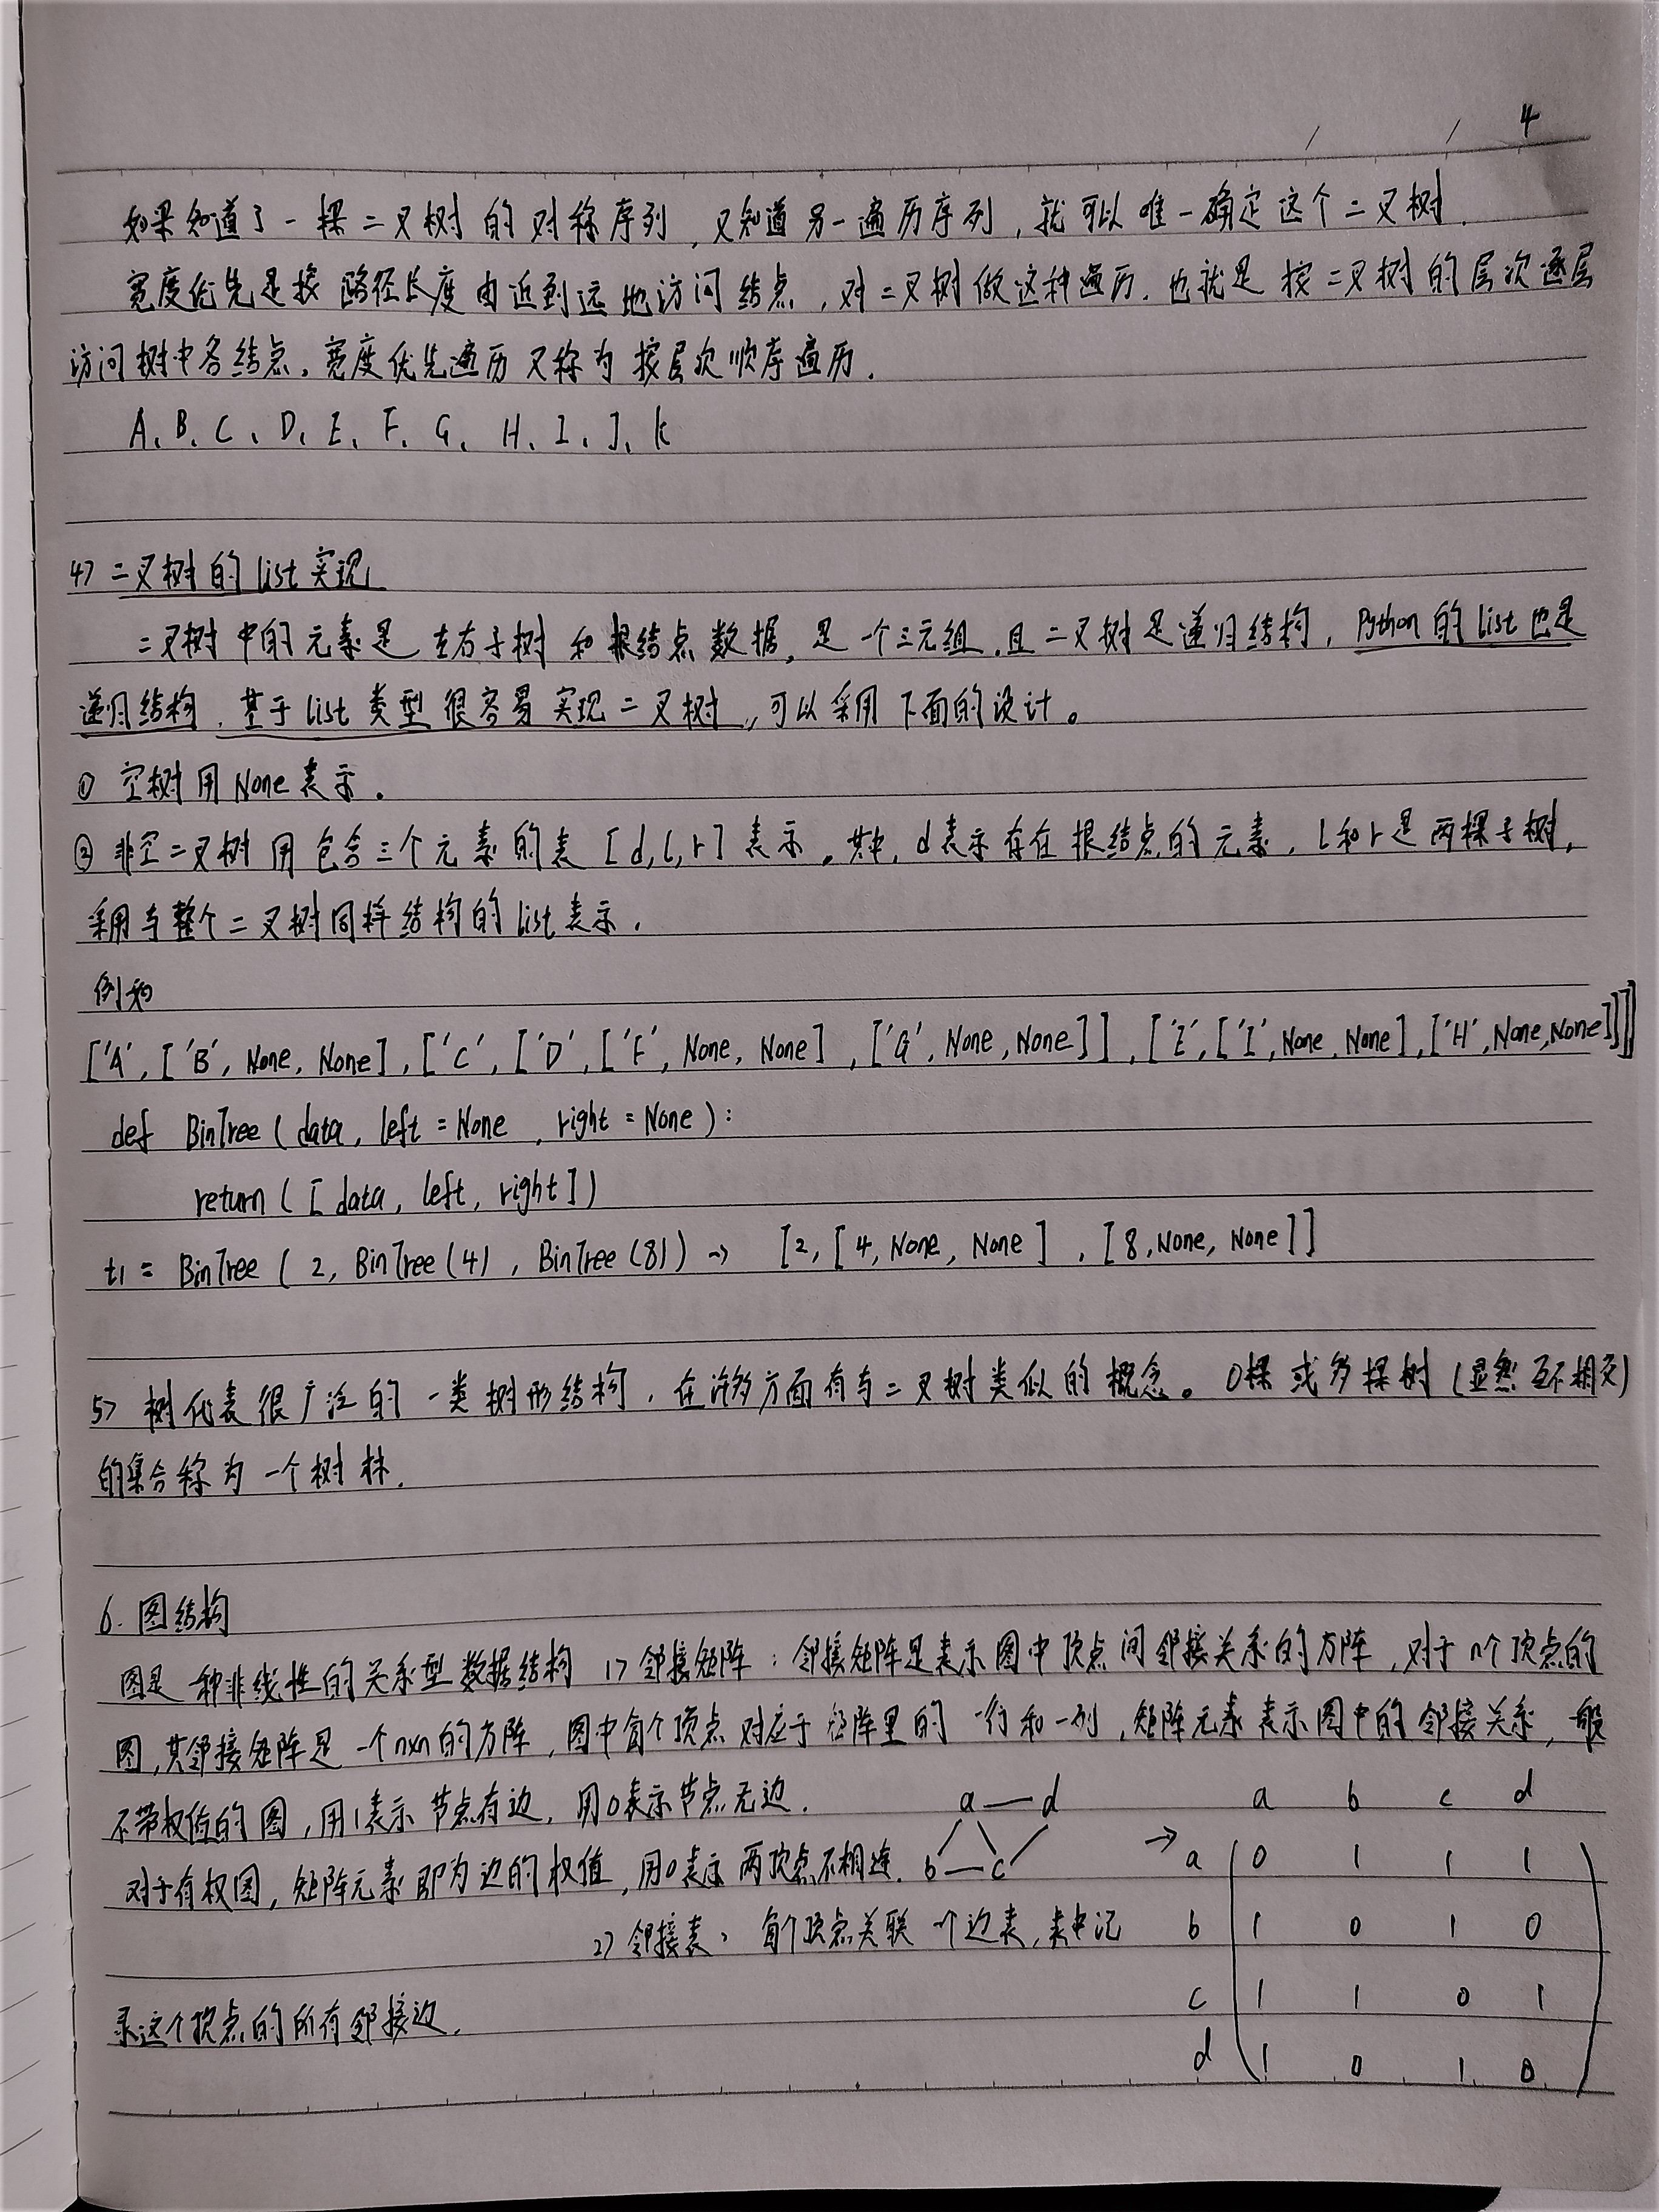 4
如果知道了一棵二叉树的对称序列，又知道另一遍历序列，就可以唯一确定这个二叉树.
宽度优先是按路径长度由近到远地访问结点，对二叉树做这种遍历.也就是按二叉树的层次逐层
访问树中各结点.宽度优先遍历又称为按层次顺序遍历.
A、B、C、D、E、F、G、H、I、J、K
4> 二叉树的list实现
二叉树中的元素是左右子树和根结点数据，是一个三元组.且二叉树是递归结构，Python的list也是
递归结构，基于list类型很容易实现二叉树，可以采用下面的设计。
① 空树用None表示.
② 非空二叉树用包含三个元素的表[d,l,r]表示。其中，d表示存在根结点的元素，l和r是两棵子树，
采用与整个二叉树同样结构的list表示.
例如
['A',['B',None,None],['C',['D',['F',None,None],['G',None,None]],['E',['I',None,None],['H',None,None]]]]
def BinTree(data, left=None, right=None):
return([data, left, right])
t1 = BinTree(2, BinTree(4), BinTree(8)) → [2,[4,None,None],[8,None,None]]
5> 树代表很广泛的一类树形结构，在许多方面有与二叉树类似的概念。0棵或多棵树(显然互不相交)
的集合称为一个树林.
6. 图结构
图是一种非线性的关系型数据结构 1> 邻接矩阵：邻接矩阵是表示图中顶点间邻接关系的方阵，对于n个顶点的
图，其邻接矩阵是一个n×n的方阵，图中每个顶点对应于矩阵里的一行和一列，矩阵元素表示图中的邻接关系，一般
不带权值的图，用1表示节点有边，用0表示节点无边.
对于有权图，矩阵元素即为边的权值，用0表示两顶点不相连.
a — d
b — c
→
a b c d
a 0 1 1 1
b 1 0 1 0
c 1 1 0 1
d 1 0 1 0
2> 邻接表：每个顶点关联一个边表，表中记
录这个顶点的所有邻接边.